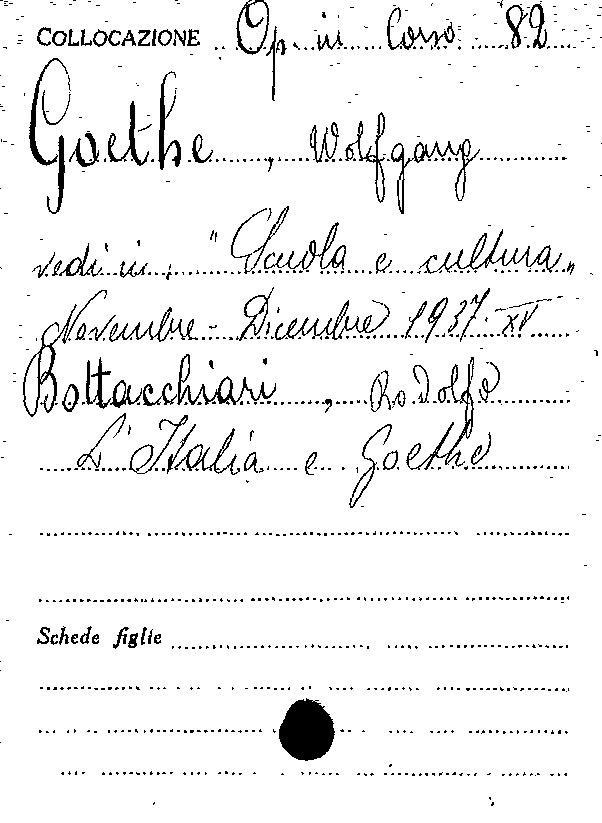 COLLOCAZIONE Op. in Corso 82
Goethe, Wolfgang
vedi in: "Scuola e cultura"
Novembre - Dicembre 1937-XV
Bottacchiari, Rodolfo
L'Italia e Goethe
Schede figlie